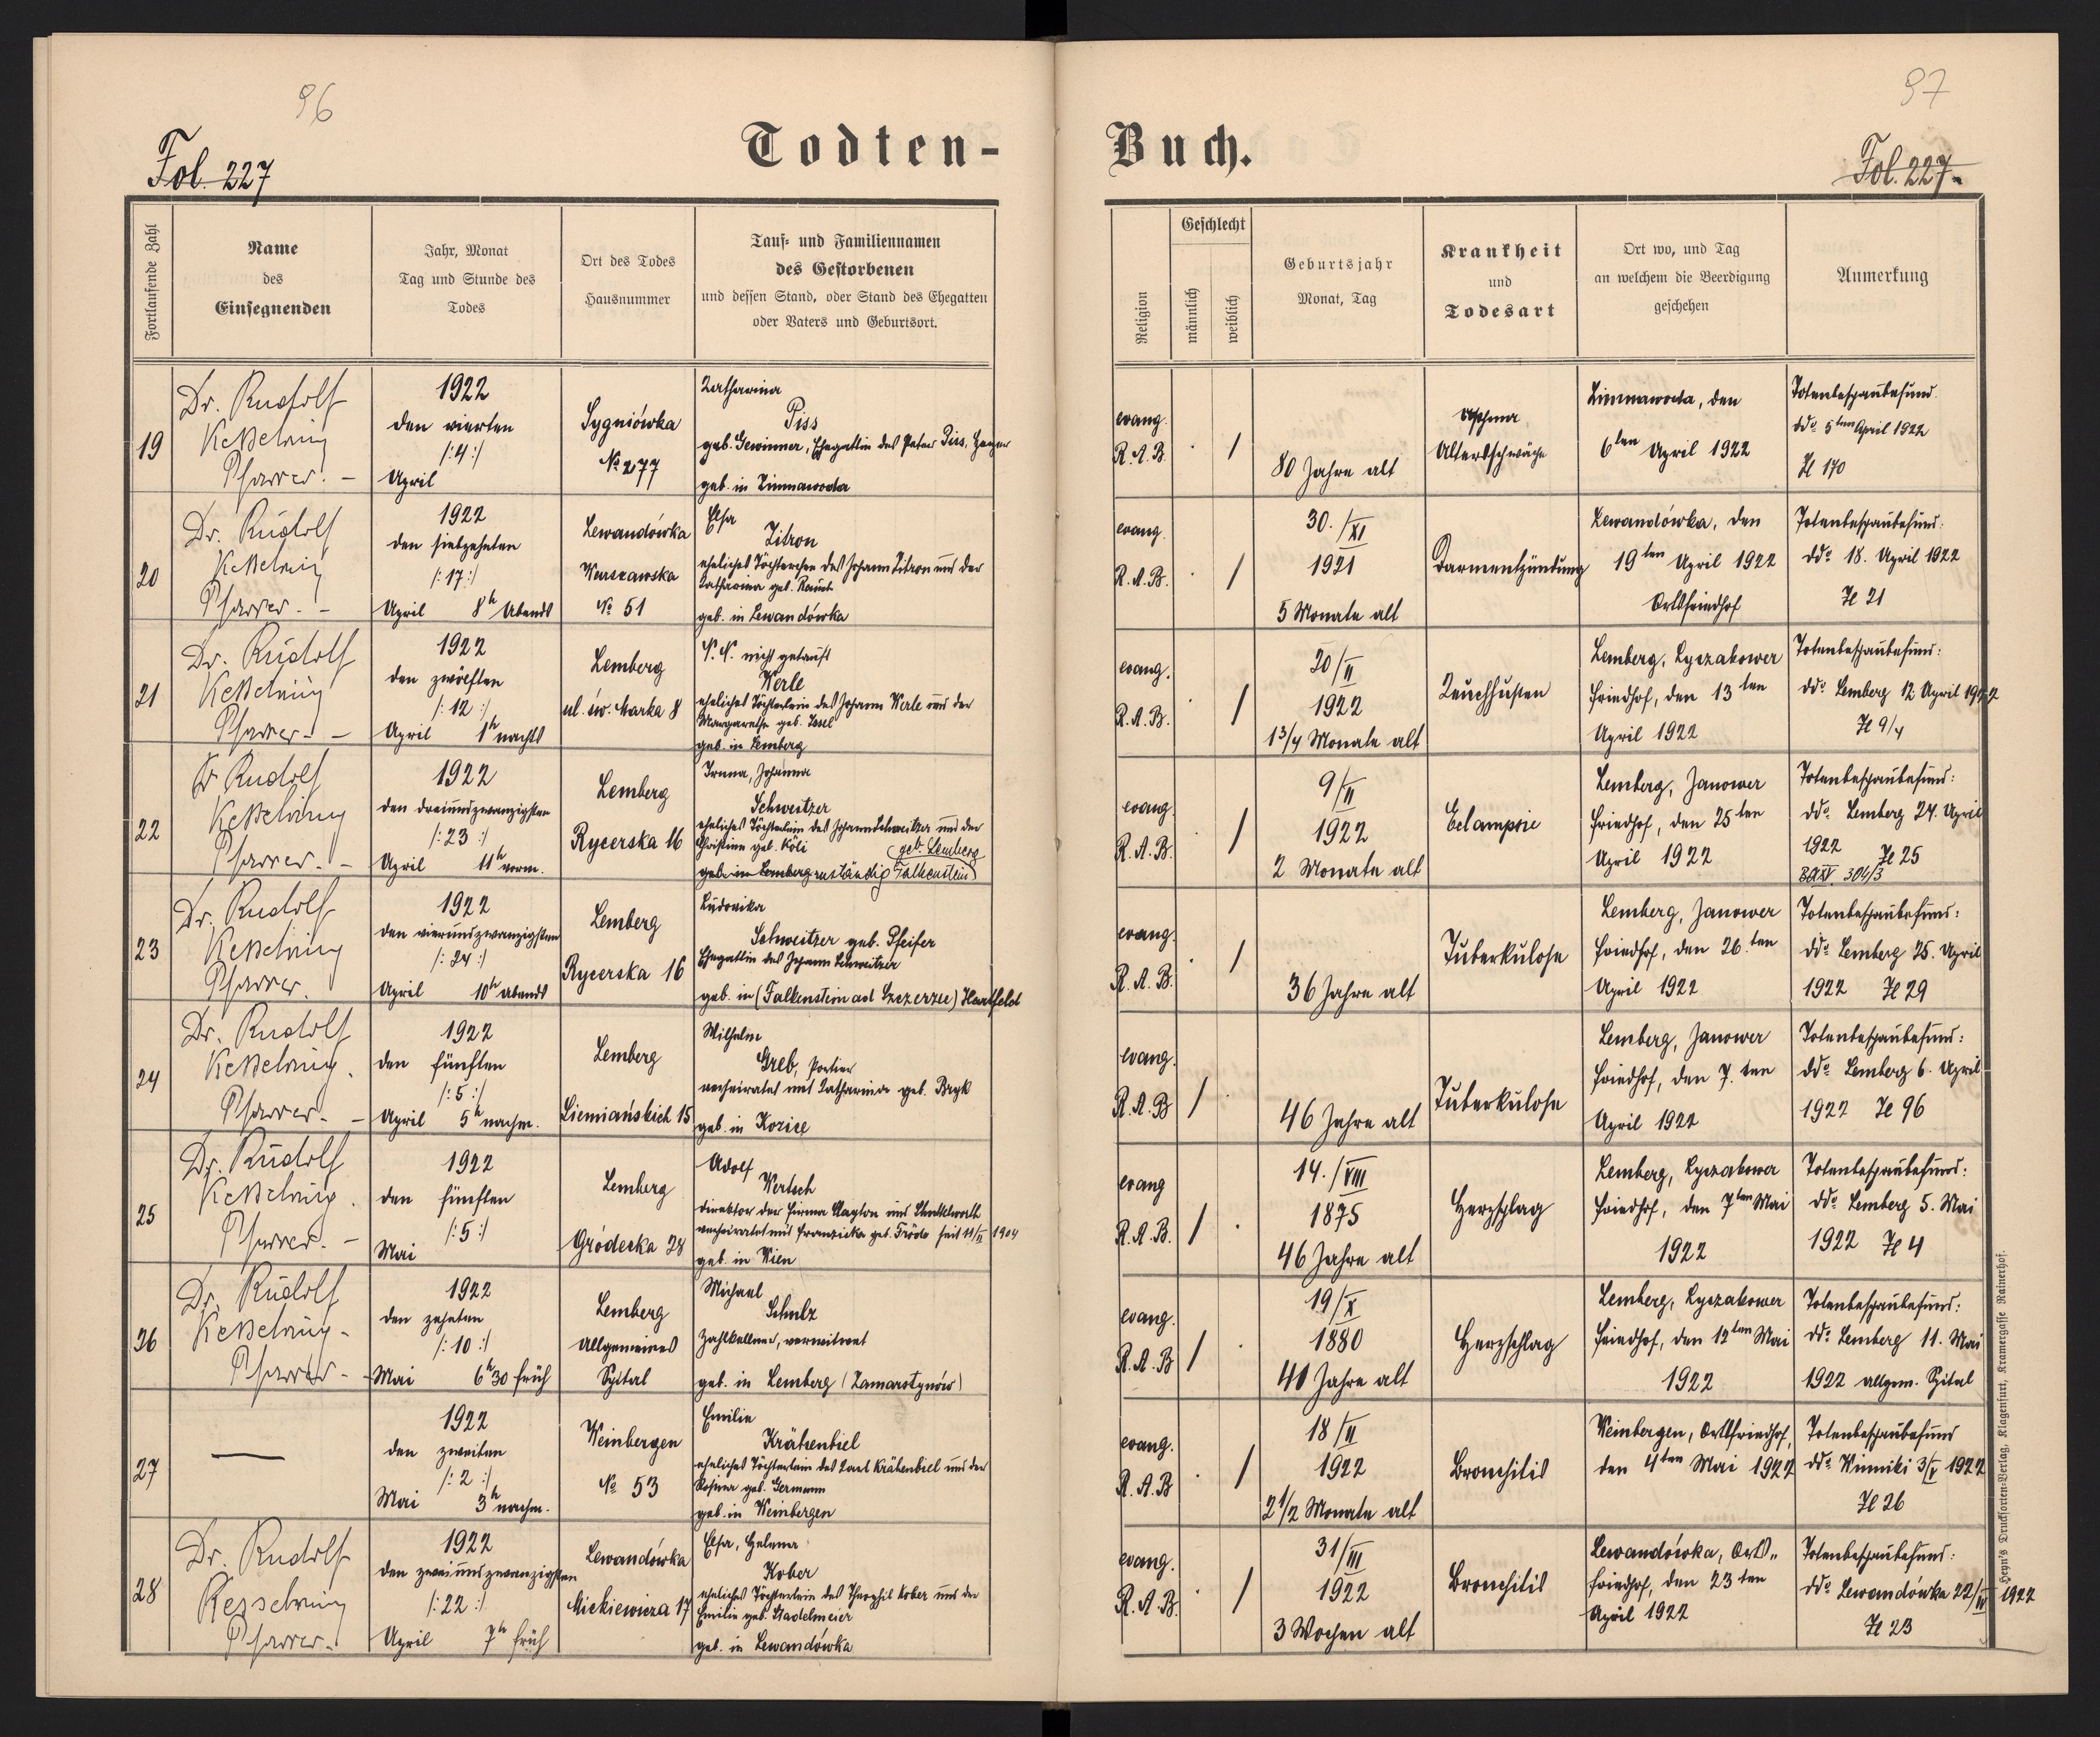 96
97
Fol. 227
Todten-
Buch.
Fol. 227.
Fortlaufende Zahl
Name
des
Einsegnenden
Jahr, Monat
Tag und Stunde des
Todes
Ort des Todes
Hausnummer
Tauf- und Familiennamen
des Gestorbenen
und dessen Stand, oder Stand des Ehegatten
oder Vaters und Geburtsort.
Religion
Geschlecht
männlich
weiblich
Geburtsjahr
Monat, Tag
Krankheit
und
Todesart
Ort wo, und Tag
an welchem die Beerdigung
geschehen
Anmerkung
19
Dr. Rudolf
Kesselring
Pfarrer. -
1922
den vierten
/:4:/
April
Sygniówka
№ 277
Katharina
Piss
geb. Gewinner, Ehegattin des Peter Piss,
geb. in Zimnawoda
evang.
R.A.B.
. /
80 Jahre alt
Asthma
Altersschwäche
Zimnawoda, den
6ten April 1922
Totenbeschaubefund
ddo 5ten April 1922
Zl 170
20
Dr. Rudolf
Kesselring
Pfarrer. -
1922
den siebzehnten
/:17:/
April 8h Abends
Lewandówka
Warszawska
№ 51
Elsa
Zitron
eheliches Töchterchen des Johann Zitron und der
Katharina geb.
geb. in Lewandówka
evang.
R.A.B.
. /
30./XI
1921
5 Monate alt
Darmentzündung
Lewandówka, den
19ten April 1922
Ortsfriedhof
Totenbeschaubefund:
ddo 18. April 1922
Zl 21
21
Dr. Rudolf
Kesselring
Pfarrer. -
1922
den zwölften
/:12:/
April 1h nachts
Lemberg
ul. św. Marka 8
N. N. nicht getauft
Werle
eheliches Töchterlein des Johann Werle und der
Margarethe geb.
geb. in Lemberg
evang.
R.A.B.
. /
20/II
1922
1 3/4 Monate alt
Keuchhusten
Lemberg, Lyczakower
Friedhof, den 13ten
April 1922
Totenbeschaubefund:
ddo Lemberg 12. April 1922
Zl 9/4
22
Dr Rudolf
Kesselring
Pfarrer. -
1922
den dreiundzwanzigsten
/:23:/
April 11h vorm.
Lemberg
Rycerska 16
Irma, Johanna
Schweitzer
eheliches Töchterlein des Johann Schweitzer und der
Christine geb. Köli
geb. Lemberg
geb. in Lemberg zuständig Falkenstein
evang.
R.A.B.
. /
9/II
1922
2 Monate alt
Eclampsie
Lemberg, Janower
Friedhof, den 25ten
April 1922
Totenbeschaubefund:
ddo Lemberg 24. April
1922 Zl 25
304/3
23
Dr. Rudolf
Kesselring
Pfarrer.
1922
den vierundzwanzigsten
/:24:/
April 10h abends
Lemberg
Rycerska 16
Ludovika
Schweitzer geb. Pfeifer
Ehegattin des Johann Schweitzer
geb. in (Falkenstein ad Szczerzec) Hartfeld
evang.
R.A.B.
. /
36 Jahre alt
Tuberkulose
Lemberg, Janower
Friedhof, den 26.ten
April 1922
Totenbeschaubefund:
ddo Lemberg 25. April
1922 Zl 29
24
Dr. Rudolf
Kesselring.
Pfarrer. -
1922
den fünften
/:5:/
April 5h nachm.
Lemberg
Ziemiańskich 15
Wilhelm
Greb, Portier
verheiratet mit Katharina geb. Bryk
geb. in Kozice
evang.
R.A.B
/ .
46 Jahre alt
Tuberkulose
Lemberg, Janower
Friedhof, den 7.ten
April 1922
Totenbeschaubefund:
ddo Lemberg 6. April
1922 Zl 96
25
Dr. Rudolf
Kesselring.
Pfarrer. -
1922
den fünften
/:5:/
Mai
Lemberg
Gródecka 28
Adolf
Wertsch
Direktor der Firma Clayton und Shuttleworth
verheiratet mit Franziska geb. seit 11/II 1904
geb. in Wien
evang
R.A.B.
/ .
14./VIII
1875
46 Jahre alt
Herzschlag
Lemberg, Lyczakower
Friedhof, den 7ten Mai
1922
Totenbeschaubefund:
ddo Lemberg 5. Mai
1922 Zl 4
26
Dr. Rudolf
Kesselring-
Pfarrer -
1922
den zehnten
/:10:/
Mai 6h30 früh
Lemberg
Allgemeines
Spital
Michael
Schulz
Zahlkellner, verwitwet
geb. in Lemberg (Zamarstynów)
evang.
R.A.B
/ .
19/X
1880
41 Jahre alt
Herzschlag
Lemberg, Lyczakower
Friedhof, den 12ten Mai
1922
Totenbeschaubefund:
ddo Lemberg 11. Mai
1922 allgem. Spital
27
—
1922
den zweiten
/:2:/
Mai 3h nachm.
Weinbergen
№ 53
Emilie
Krähenbiel
eheliches Töchterlein des Karl Krähenbiel und der
Rosina geb. Germann
geb. in Weinbergen
evang.
R.A.B
. /
18/II
1922
2 1/2 Monate alt
Bronchitis
Weinbergen, Ortsfriedhof,
den 4ten Mai 1922
Totenbeschaubefund
ddo Winniki 3/V 1922
Zl 26
28
Dr. Rudolf
Kesselring
Pfarrer.
1922
den zweiundzwanzigsten
/:22:/
April 7h früh
Lewandówka
Mickiewicza 17
Elsa, Helena
Kober
eheliches Töchterlein des Theophil Kober und der
Emilie geb. Stadelmeier
geb. in Lewandówka
evang.
R.A.B.
. /
31/III
1922
3 Wochen alt
Bronchitis
Lewandówka, Orts-
friedhof, den 23ten
April 1922
Totenbeschaubefund:
ddo Lewandówka 22/IV 1922
Zl 23
Heyn's Drucksorten-Verlag, Klagenfurt, Kramergasse Rainerhof.